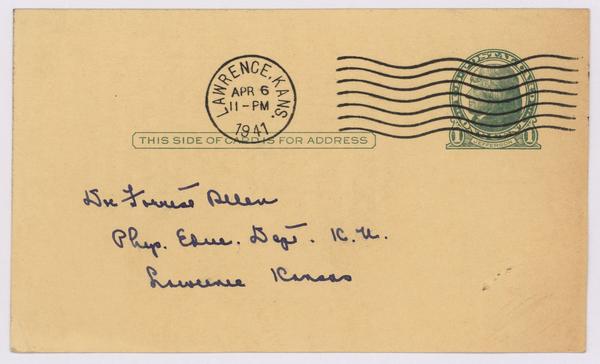 LAWRENCE, KANS.
APR 6
11-PM
1941
THIS SIDE OF CARD IS FOR ADDRESS
1 JEFFERSON 1
Dr. Forrest Allen
Phys. Educ. Dept. K.U.
Lawrence Kansas